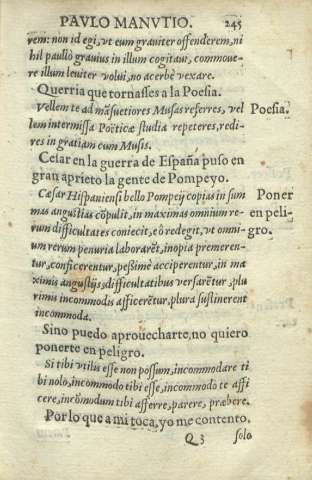 PAVLO MANVTIO. 245
rem: non id egi, vt eum grauiter offenderem, ni
hil paullò grauius in illum cogitaui, commoue-
re illum leuiter volui, no acerbè vexare.
Querria que tornasses a la Poesia.
Vellem te ad mãsuetiores Musas referres, vel
lem intermissa Poëticæ studia repeteres, redi-
res in gratiam cum Musis.
Poesia.
Cesar en la guerra de España puso en
gran aprieto la gente de Pompeyo.
Cæsar Hispaniensi bello Pompeij copias in sum
mas angustias cõpulit, in maximas omnium re-
rum difficultates coniecit, eò redegit, vt omni-
um rerum penuria laborarẽt, inopia premeren-
tur, conficerentur, pessimè acciperentur, in ma
ximis angustijs, difficultatibus versarẽtur, plu
rimis incommodis afficerẽtur, plura sustinerent
incommoda.
Poner
en peli-
gro.
Sino puedo aprouecharte, no quiero
ponerte en peligro.
Si tibi vtilis esse non possum, incommodare ti
bi nolo, incommodo tibi esse, incommodo te affi
cere, incõmodum tibi afferre, parere, præbere.
Por lo que a mi toca, yo me contento,
Q 3 solo